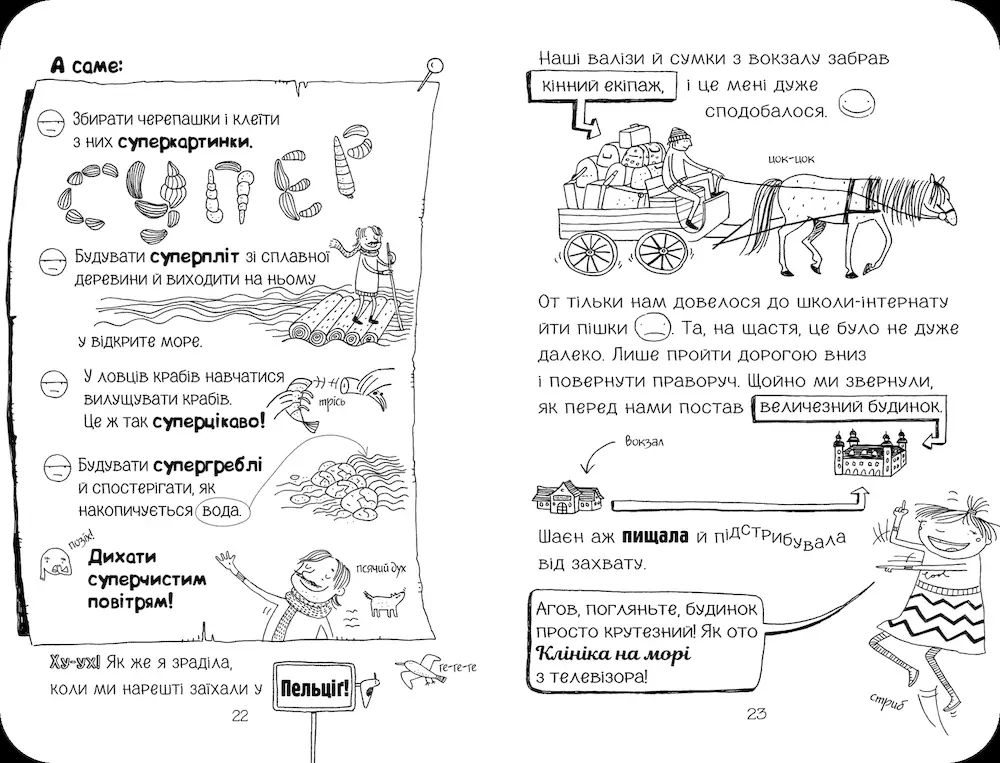 А саме:
Збирати черепашки і клеїти
з них суперкартинки.
СУПЕР
Будувати суперпліт зі сплавної
деревини й виходити на ньому
у відкрите море.
У ловців крабів навчатися
вилущувати крабів.
Це ж так суперцікаво!
трісь
Будувати супергреблі
й спостерігати, як
накопичується вода.
позіх!
Дихати
суперчистим
повітрям!
псячий дух
Ху-ух! Як же я зраділа,
коли ми нарешті заїхали у
Пельціґ!
ґе-ґе-ґе
22
Наші валізи й сумки з вокзалу забрав
кінний екіпаж, і це мені дуже
сподобалося.
цок-цок
От тільки нам довелося до школи-інтернату
йти пішки . Та, на щастя, це було не дуже
далеко. Лише пройти дорогою вниз
і повернути праворуч. Щойно ми звернули,
як перед нами постав величезний будинок.
вокзал
Шаєн аж пищала й підстрибувала
від захвату.
Агов, погляньте, будинок
просто крутезний! Як ото
Клініка на морі
з телевізора!
cool
стриб
23